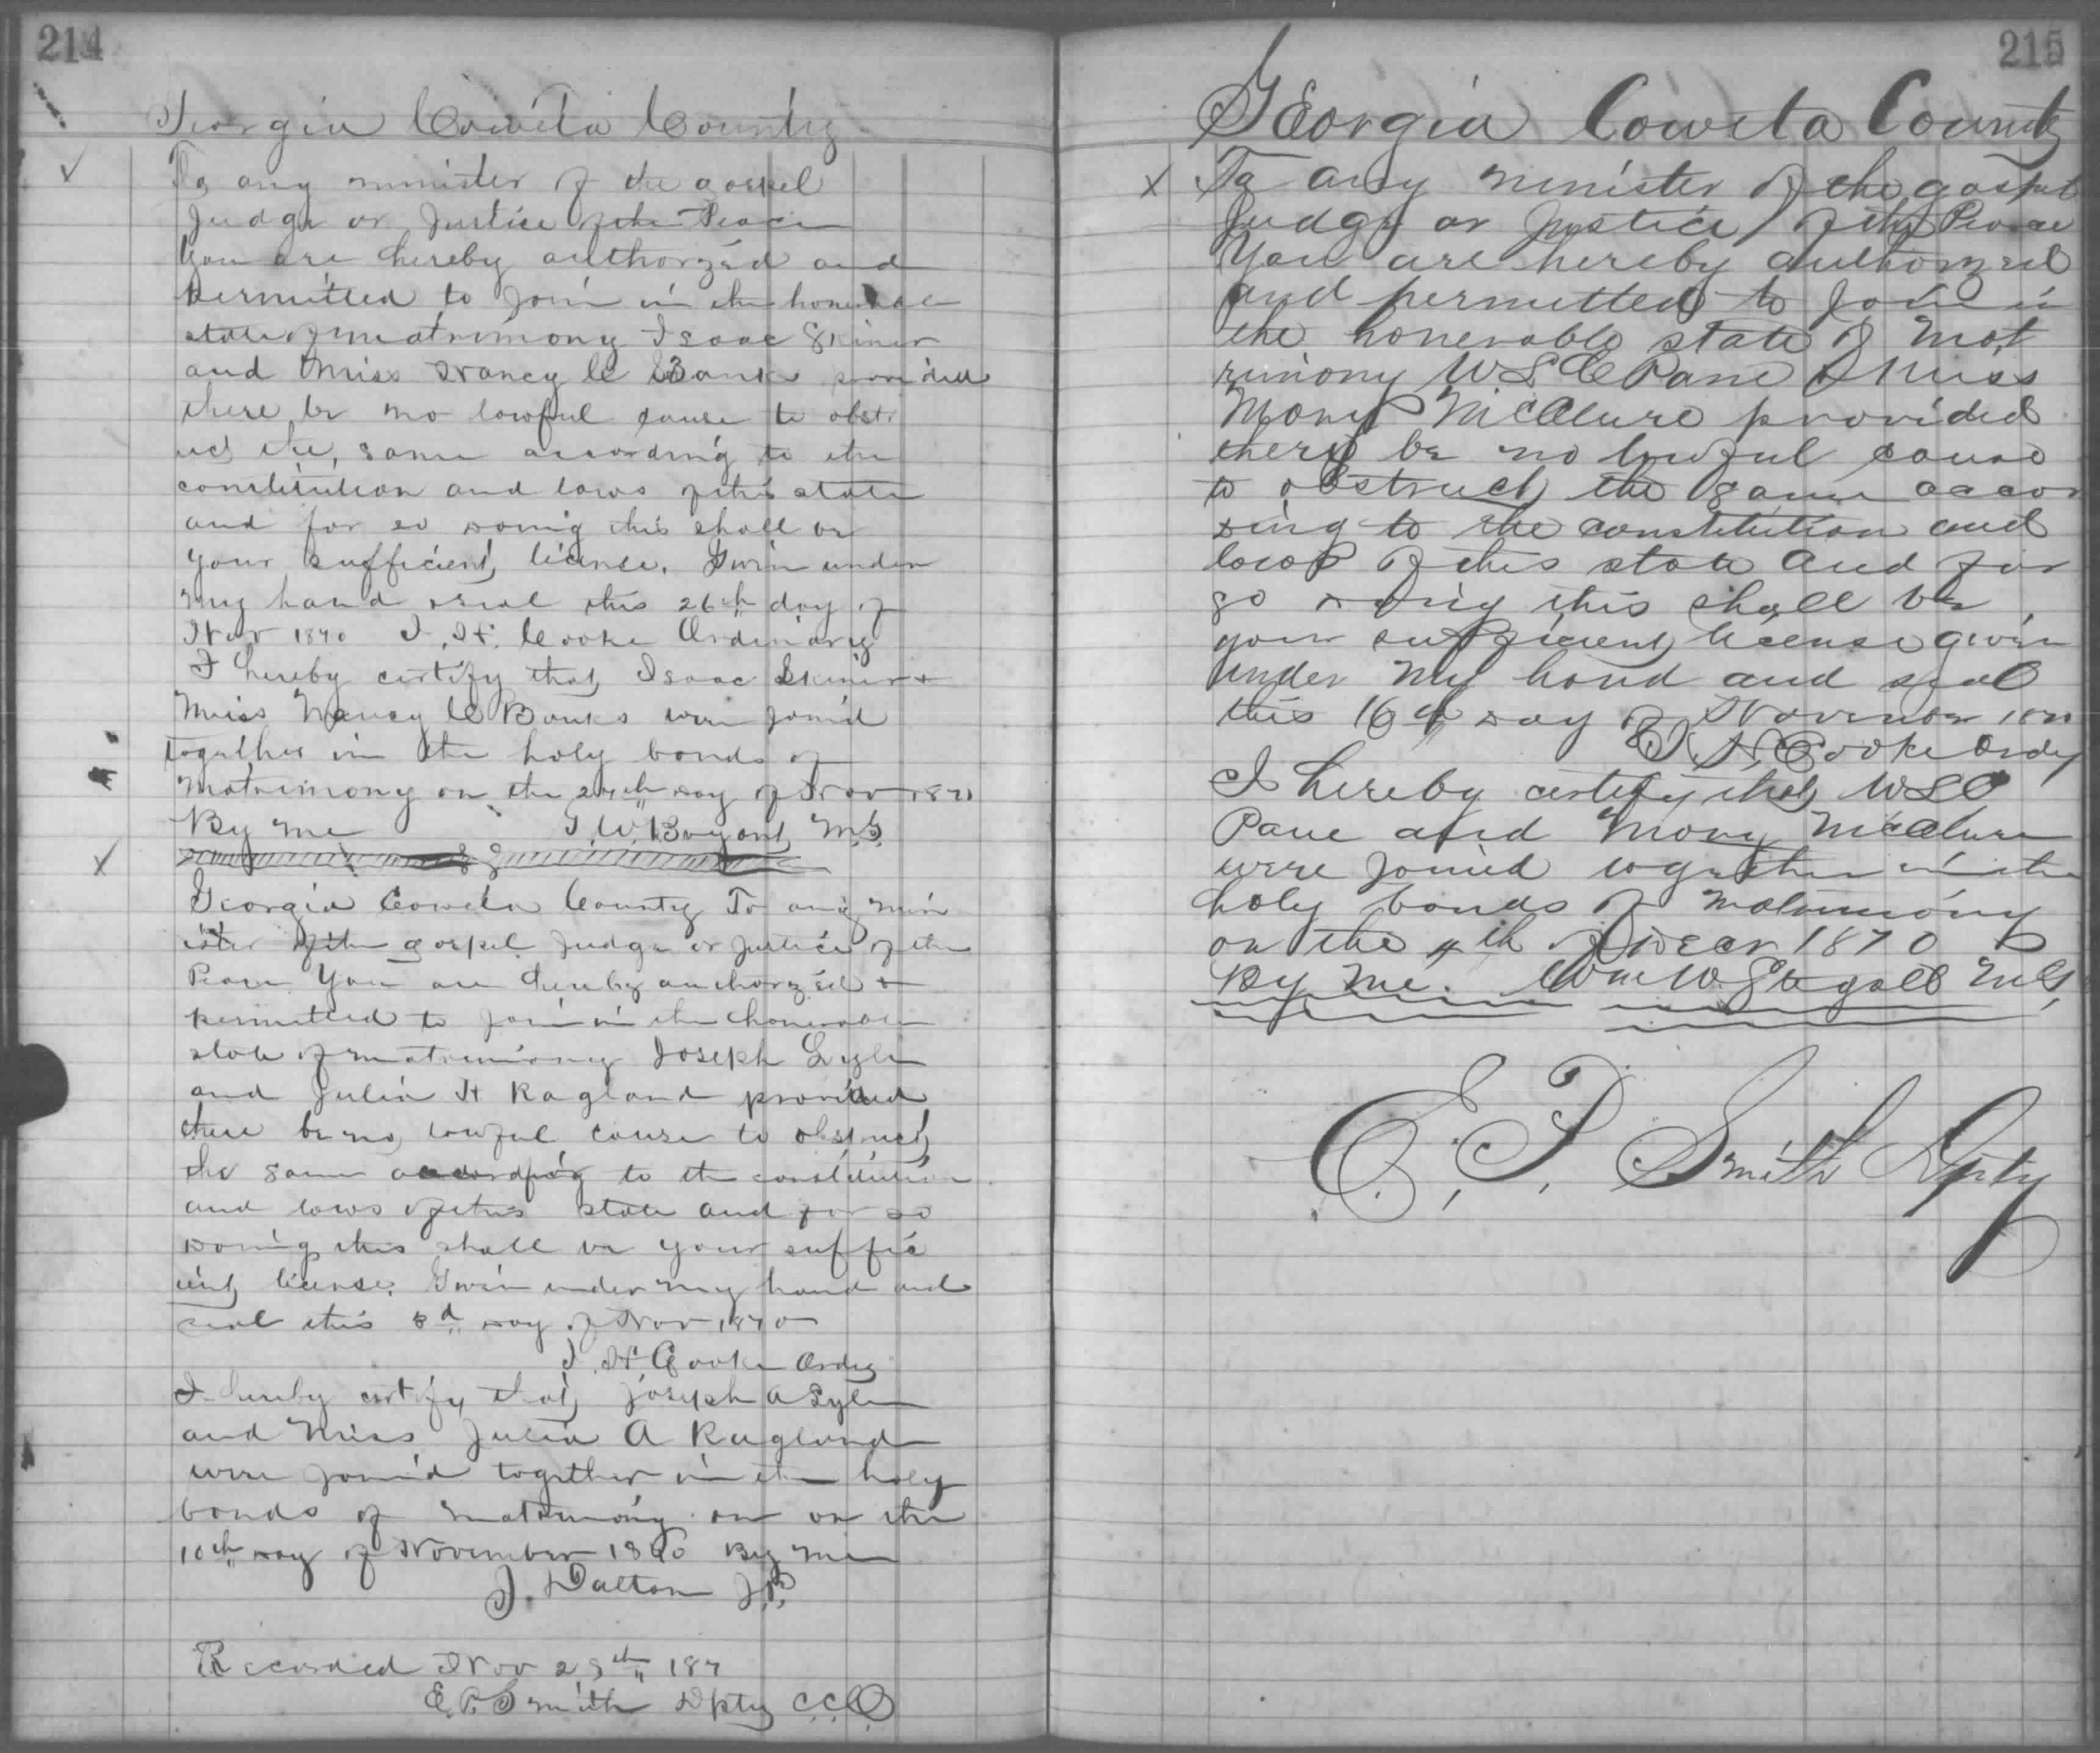 214
Georgia Coweta County
To any minister of the gospel
Judge or Justice of the Peace
You are hereby authorzed and
permitted to join in the honerable
state of matrimony Isaac Skiner
and Miss Nancy C Banks provided
there be no lawful cause to obstr
uct the same according to the
constitution and laws of this state
and for so doing this shall be
your sufficient license. Given under
my hand & seal this 26th day of
Nov 1870 J. H. Cooke Ordinary
I hereby certify that Isaac Skiner &
Miss Nancy C Banks were joined
together in the holy bonds of
Matrimony on the 27th day of Nov 1870
By me J. W. Bryant M.G.
Georgia Coweta County To any min
ister of the gospel Judge or Justice of the
Peace You are hereby authorzed &
permitted to join in the honerable
state of matrimony Joseph Lyle
and Julia H Ragland provided
there be no lawful cause to obstruct
the same according to the constitution
and laws of this state and for so
doing this shall be your suffic
ient license. Given under my hand and
seal this 8d day of Nov 1870
J. H. Cooke Ordy
I hereby certify that Joseph A Lyle
and Miss Julia A Ragland
were joined together in the holy
bonds of matrimony on on the
10th day of November 1870 By me
J. Dalton J.P.
Recorded Nov 29th 187
E. P. Smith Dpty C.C.O
215
Georgia Coweta County
To any minister of the gospel
Judge or Justice of the Peace
You are hereby authorzed
and permitted to join in
the honerable state of mat
rimony W S C Pane & Miss
Mary McClure provided
there be no lawful cause
to obstruct the same accor
ding to the constitution and
laws of this state and for
so doing this shall be
your sufficient license given
under my hand and seal
this 16th day of November 1870
J. H. Cooke Ordy
I hereby certify that W S C
Pane and Mary McClure
were joined together in the
holy bonds of matrimony
on the 4th of Decr 1870
By me. Wm W. Stegall M.G.
E. P. Smith Dpty